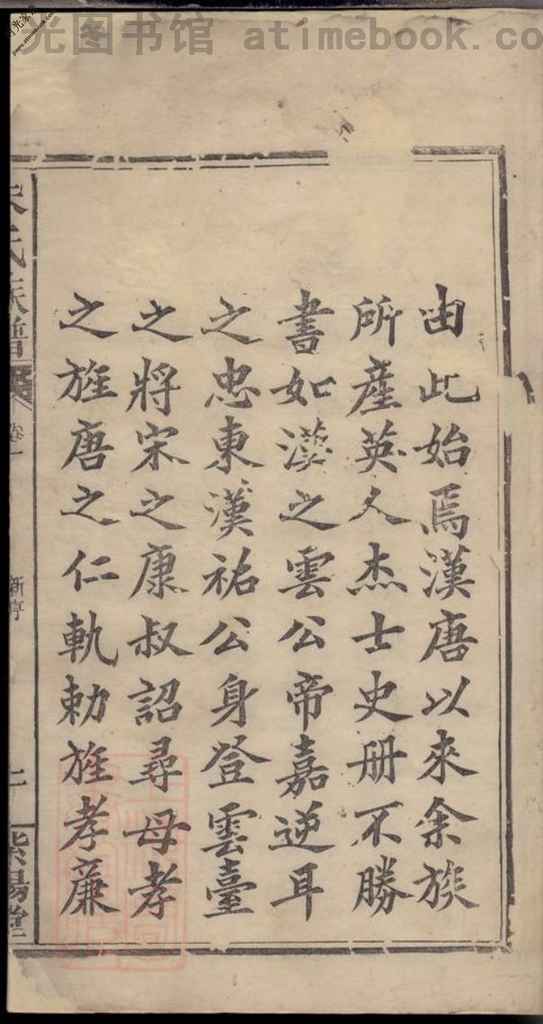 光图书馆 atimebook.co
由此始焉漢唐以來余族
所產英人杰士史册不勝
書如漢之雲公帝嘉逆耳
之忠東漢祐公身登雲臺
之將宋之康叔詔尋母孝
之旌唐之仁軌勅旌孝廉
氏族譜
卷一
新渟
紫陽堂